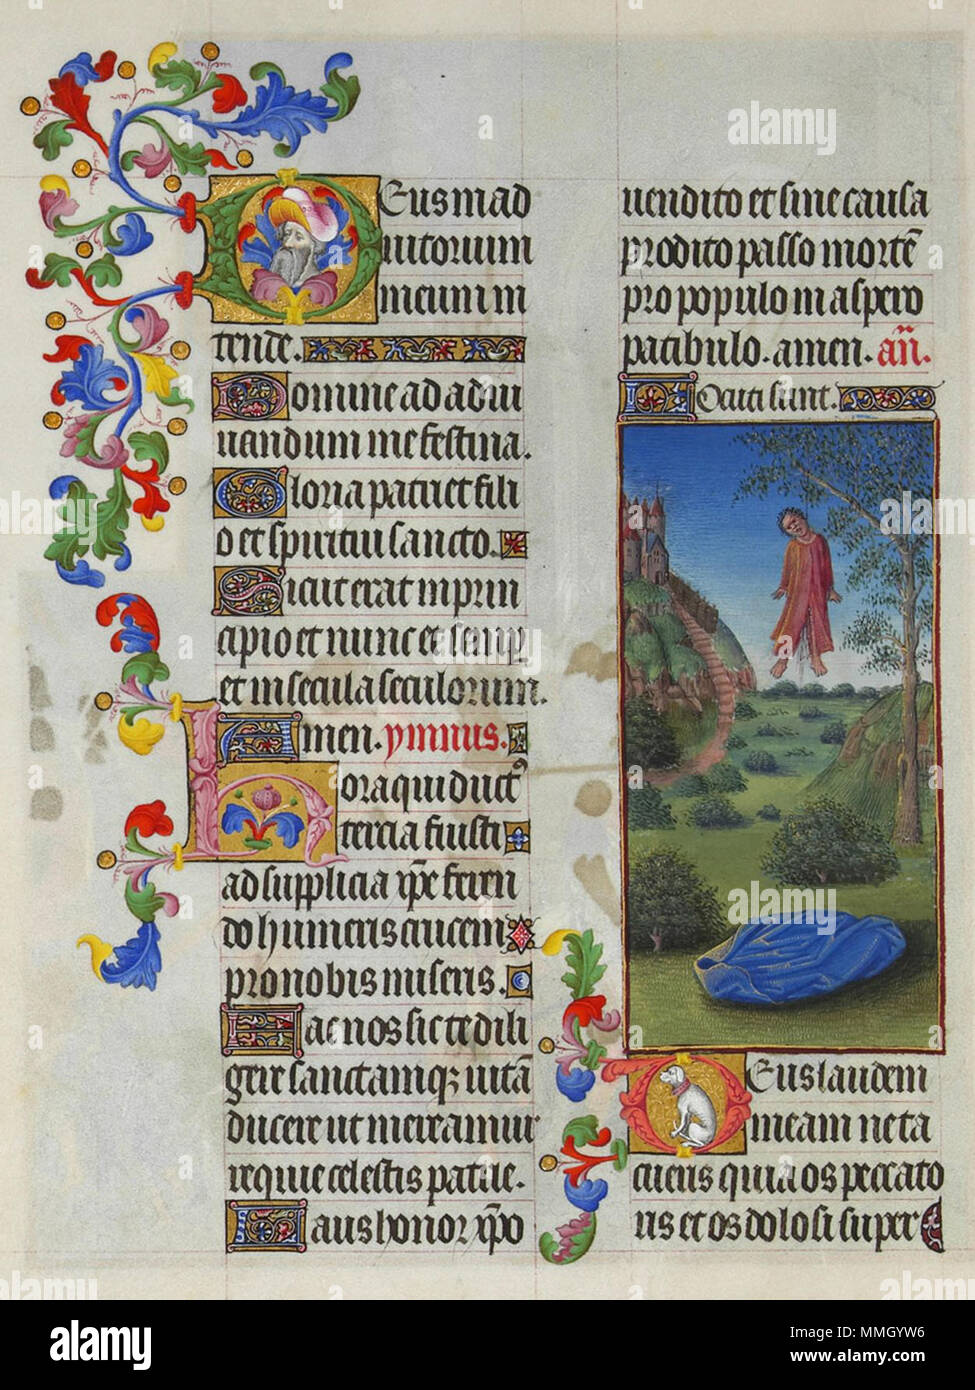 Deus in ad
iutorium
meum in
tende.
Domine ad adiu
uandum me festina.
Gloria patri et fili
o et spiritui sancto.
Sicut erat in prin
cipio et nunc et semp
et in secula seculorum.
Amen. ymnus.
Hora qui duct9
tercia fuisti
ad supplicia xp̄e feren
do humeris crucem
pro nobis miseris.
Fac nos sic te dili
gere sanctamqz uitā
ducere ut mereamur
requie celestis patrie.
Laus honor xp̄o
uendito et sine causa
prodito passo mortē
pro populo in aspero
patibulo. amen. añ.
Locuti sunt.
Deus laudem
meam ne ta
cueris quia os peccato
ris et os dolosi super
a alamy
alamy
Image ID: MMGYW6
www.alamy.com